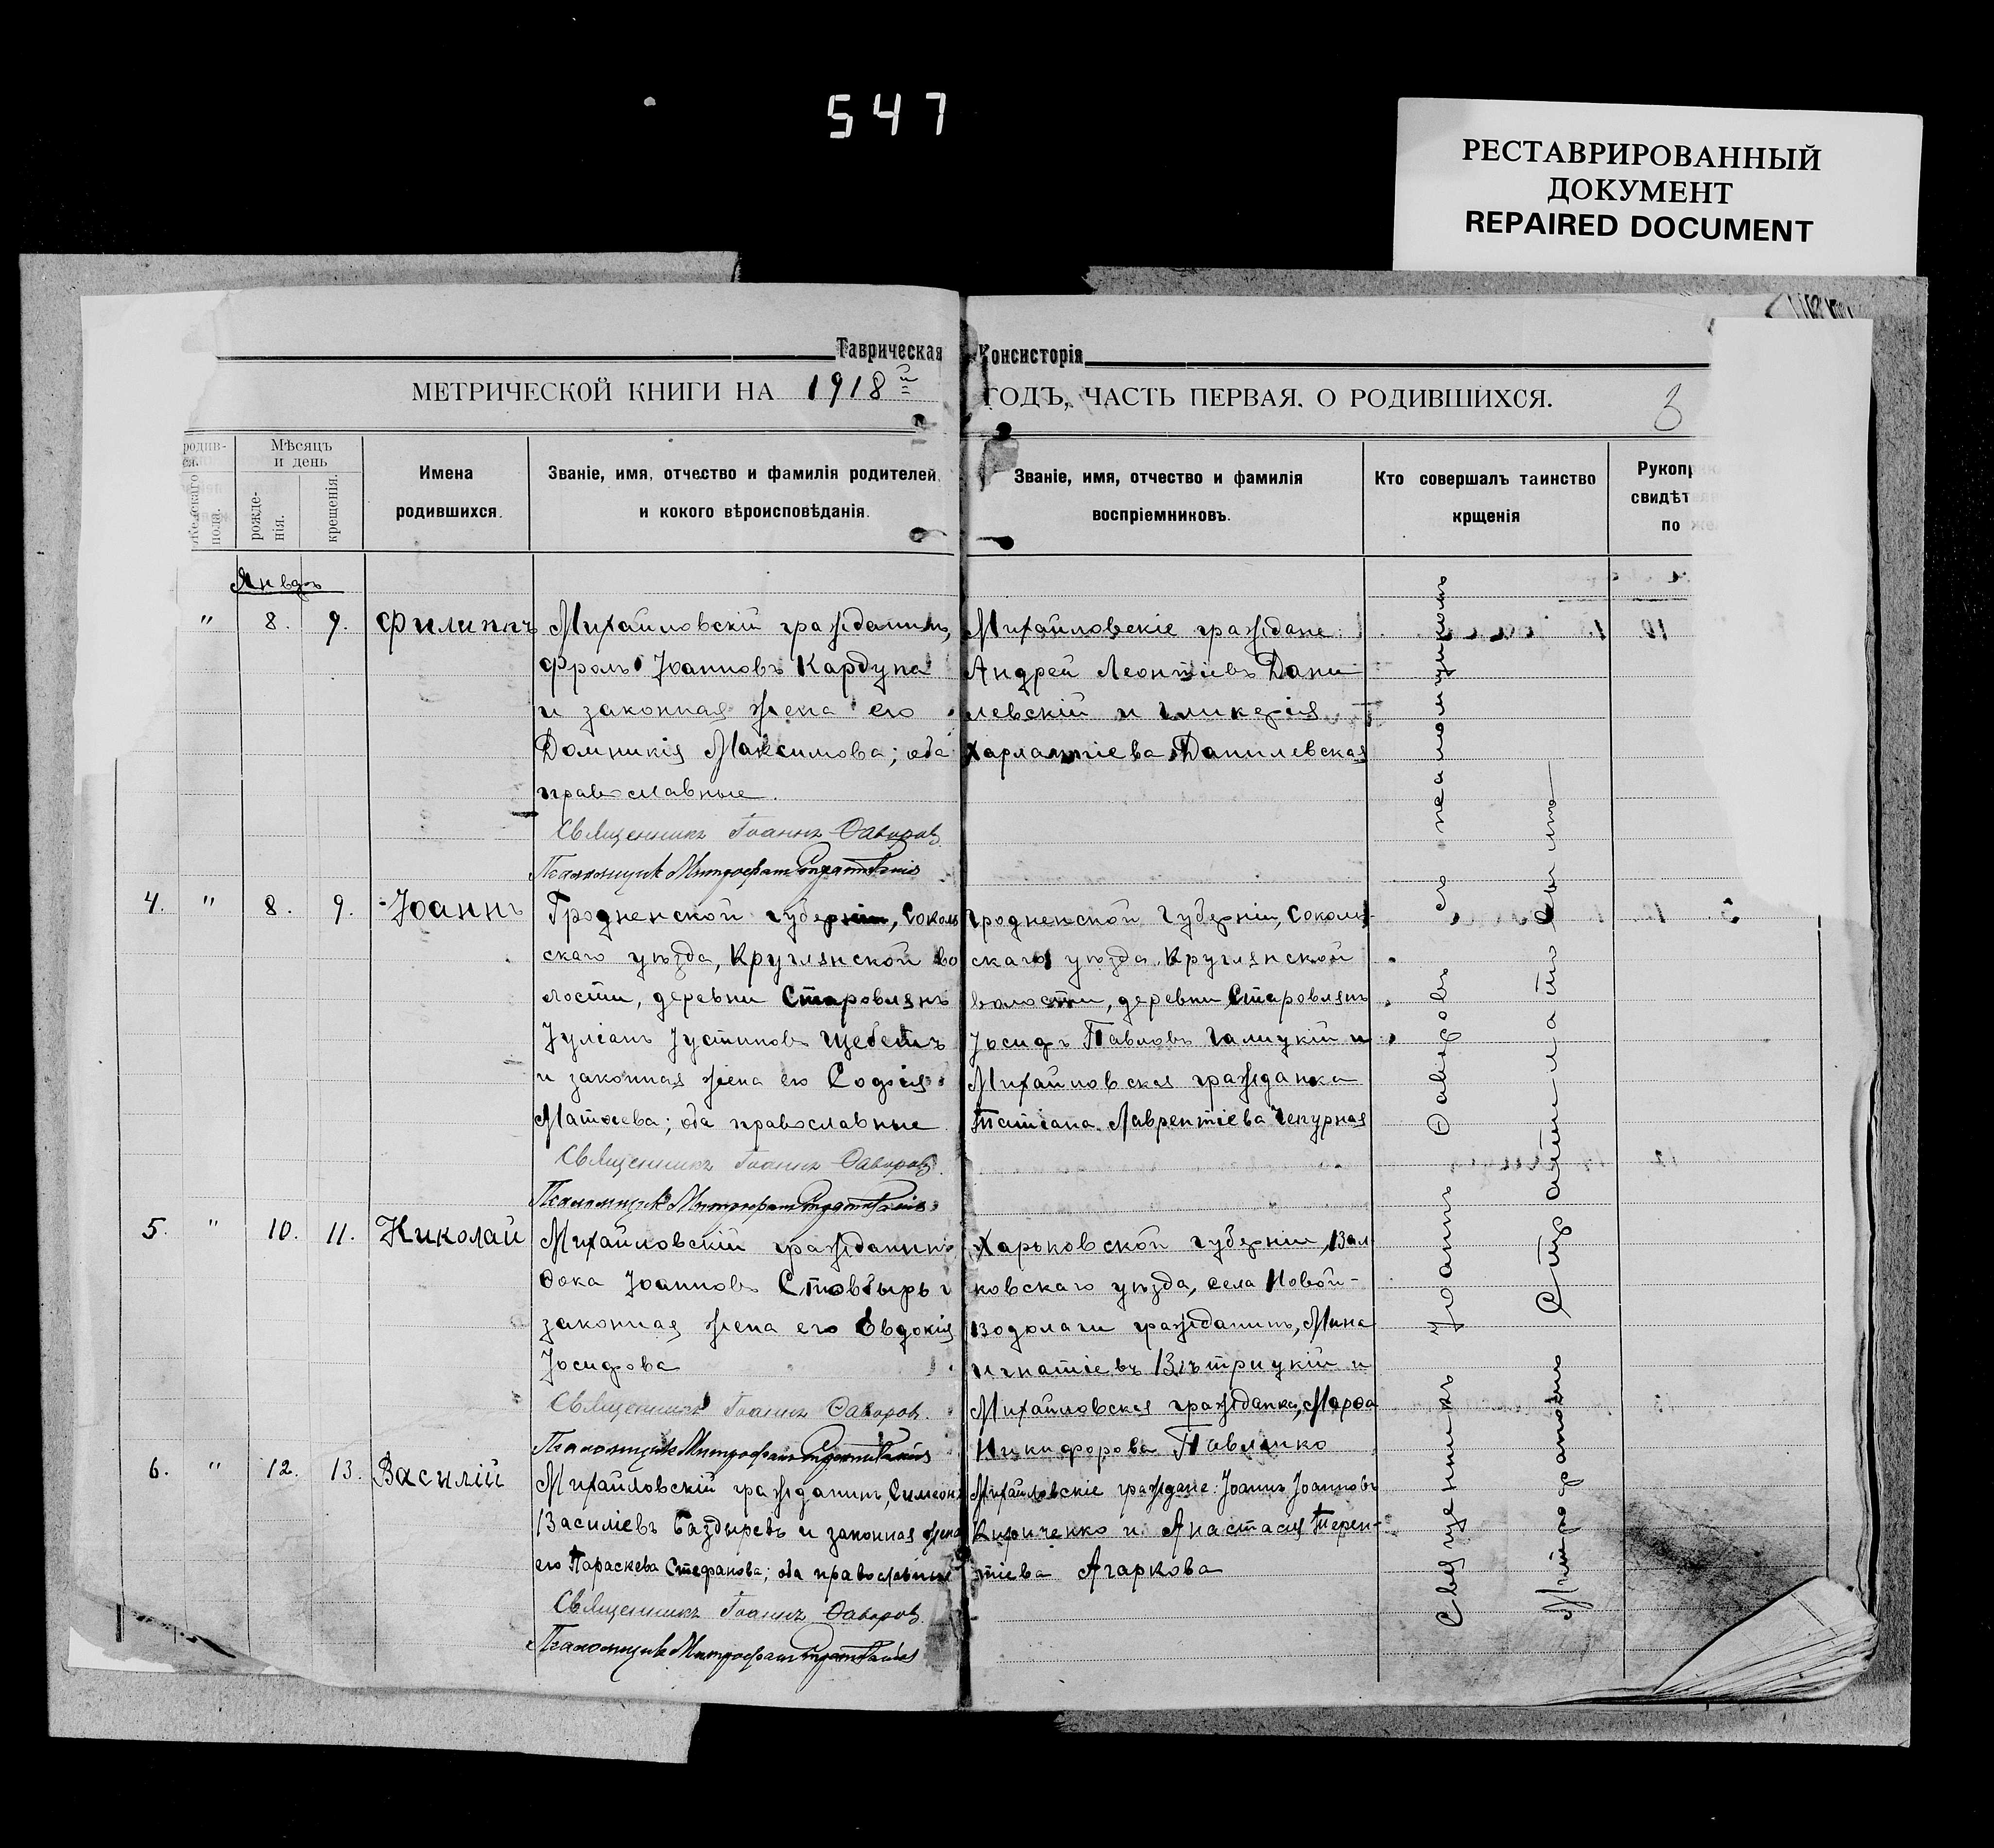 547
РЕСТАВРИРОВАННЫЙ
ДОКУМЕНТ
REPAIRED DOCUMENT
Таврическая Консисторія
МЕТРИЧЕСКОЙ КНИГИ НА 1918й ГОДЪ, ЧАСТЬ ПЕРВАЯ, О РОДИВШИХСЯ.
3
родив-
ся.
Женскаго пола.
Мѣсяцъ
и день
рожде-
нія.
крещенія.
Имена
родившихся.
Званіе, имя, отчество и фамилія родителей,
и кокого вѣроисповѣданія.
Званіе, имя, отчество и фамилія
воспріемниковъ.
Кто совершалъ таинство
крщенія
Рукопр
свидѣт
по же
Январь
" 8. 9. Филиппъ
Михайловскій гражданинъ,
Фролъ Іоанновъ Кардупа
и законная жена его
Домникія Максимова; оба
православные.
Священникъ Іоаннъ Ѳаворов.
Псаломщик Митрофан
Михайловскіе граждане:
Андрей Леонтіевъ Дани
левскій и Гликерія
Харлампіева Данилевская
4. " 8. 9. Іоаннъ
Гродненской губерніи, Соколь
скаго уѣзда, Круглянской во
лости, деревни Старовлянъ
Іуліанъ Іустиновъ Щебетъ
и законная жена его Софія
Матѳеева; оба православные
Священникъ Іоаннъ Ѳаворов.
Псаломщик Митрофан
Гродненской губерніи, Соколь-
скаго уѣзда, Круглянской
волости, деревни Старовлянъ
Іосифъ Павловъ Галицкій и
Михайловская гражданка
Татіана Лаврентіева Чепурная
5. " 10. 11. Николай
Михайловскій гражданинъ
Ѳока Іоанновъ Стовбырь и
законная жена его Евдокія
Іосифова
Священникъ Іоаннъ Ѳаворов.
Псаломщик Митрофан
Харьковской губерніи, Вал
ковскаго уѣзда, села Новой-
Водолаги гражданинъ, Мина
Игнатіевъ и
Михайловская гражданка, Марѳа
Никифорова Павленко
6. " 12. 13. Василій
Михайловскій гражданинъ, Симеонъ
Василіевъ Баздыревъ и законная жена
его Параскева Стефанова; оба православные
Священникъ Іоаннъ Ѳаворов.
Псаломщик Митрофан
Михайловскіе граждане: Іоаннъ Іоанновъ
Кириченко и Анастасія Терен-
тіева Агаркова
Священникъ Іоаннъ Ѳаворовъ съ псаломщикомъ
Митрофаномъ